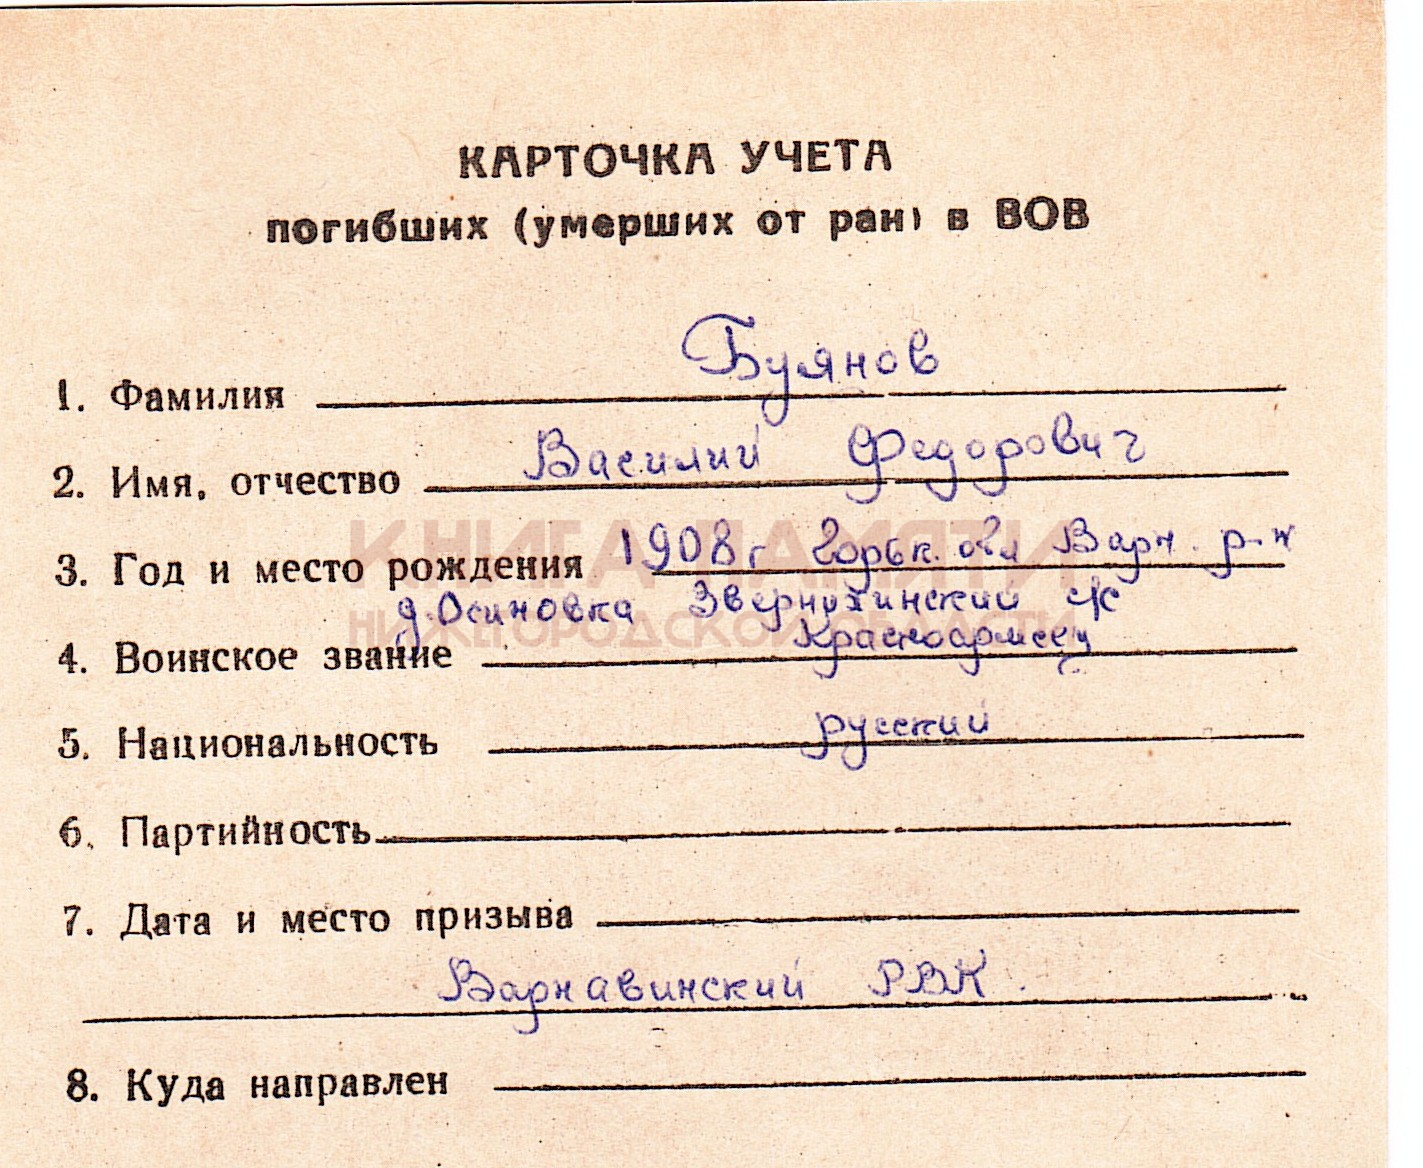 КАРТОЧКА УЧЕТА
погибших (умерших от ран) в ВОВ
1. Фамилия Буянов
2. Имя, отчество Василий Федорович
3. Год и место рождения 1908 г Горьк. обл Варн. р-н
д. Осиновка Звернихинский с/с
4. Воинское звание Красноармеец
5. Национальность русский
6. Партийность
7. Дата и место призыва
Варнавинский РВК.
8. Куда направлен
КНИГА ПАМЯТИ
НИЖЕГОРОДСКОЙ ОБЛАСТИ